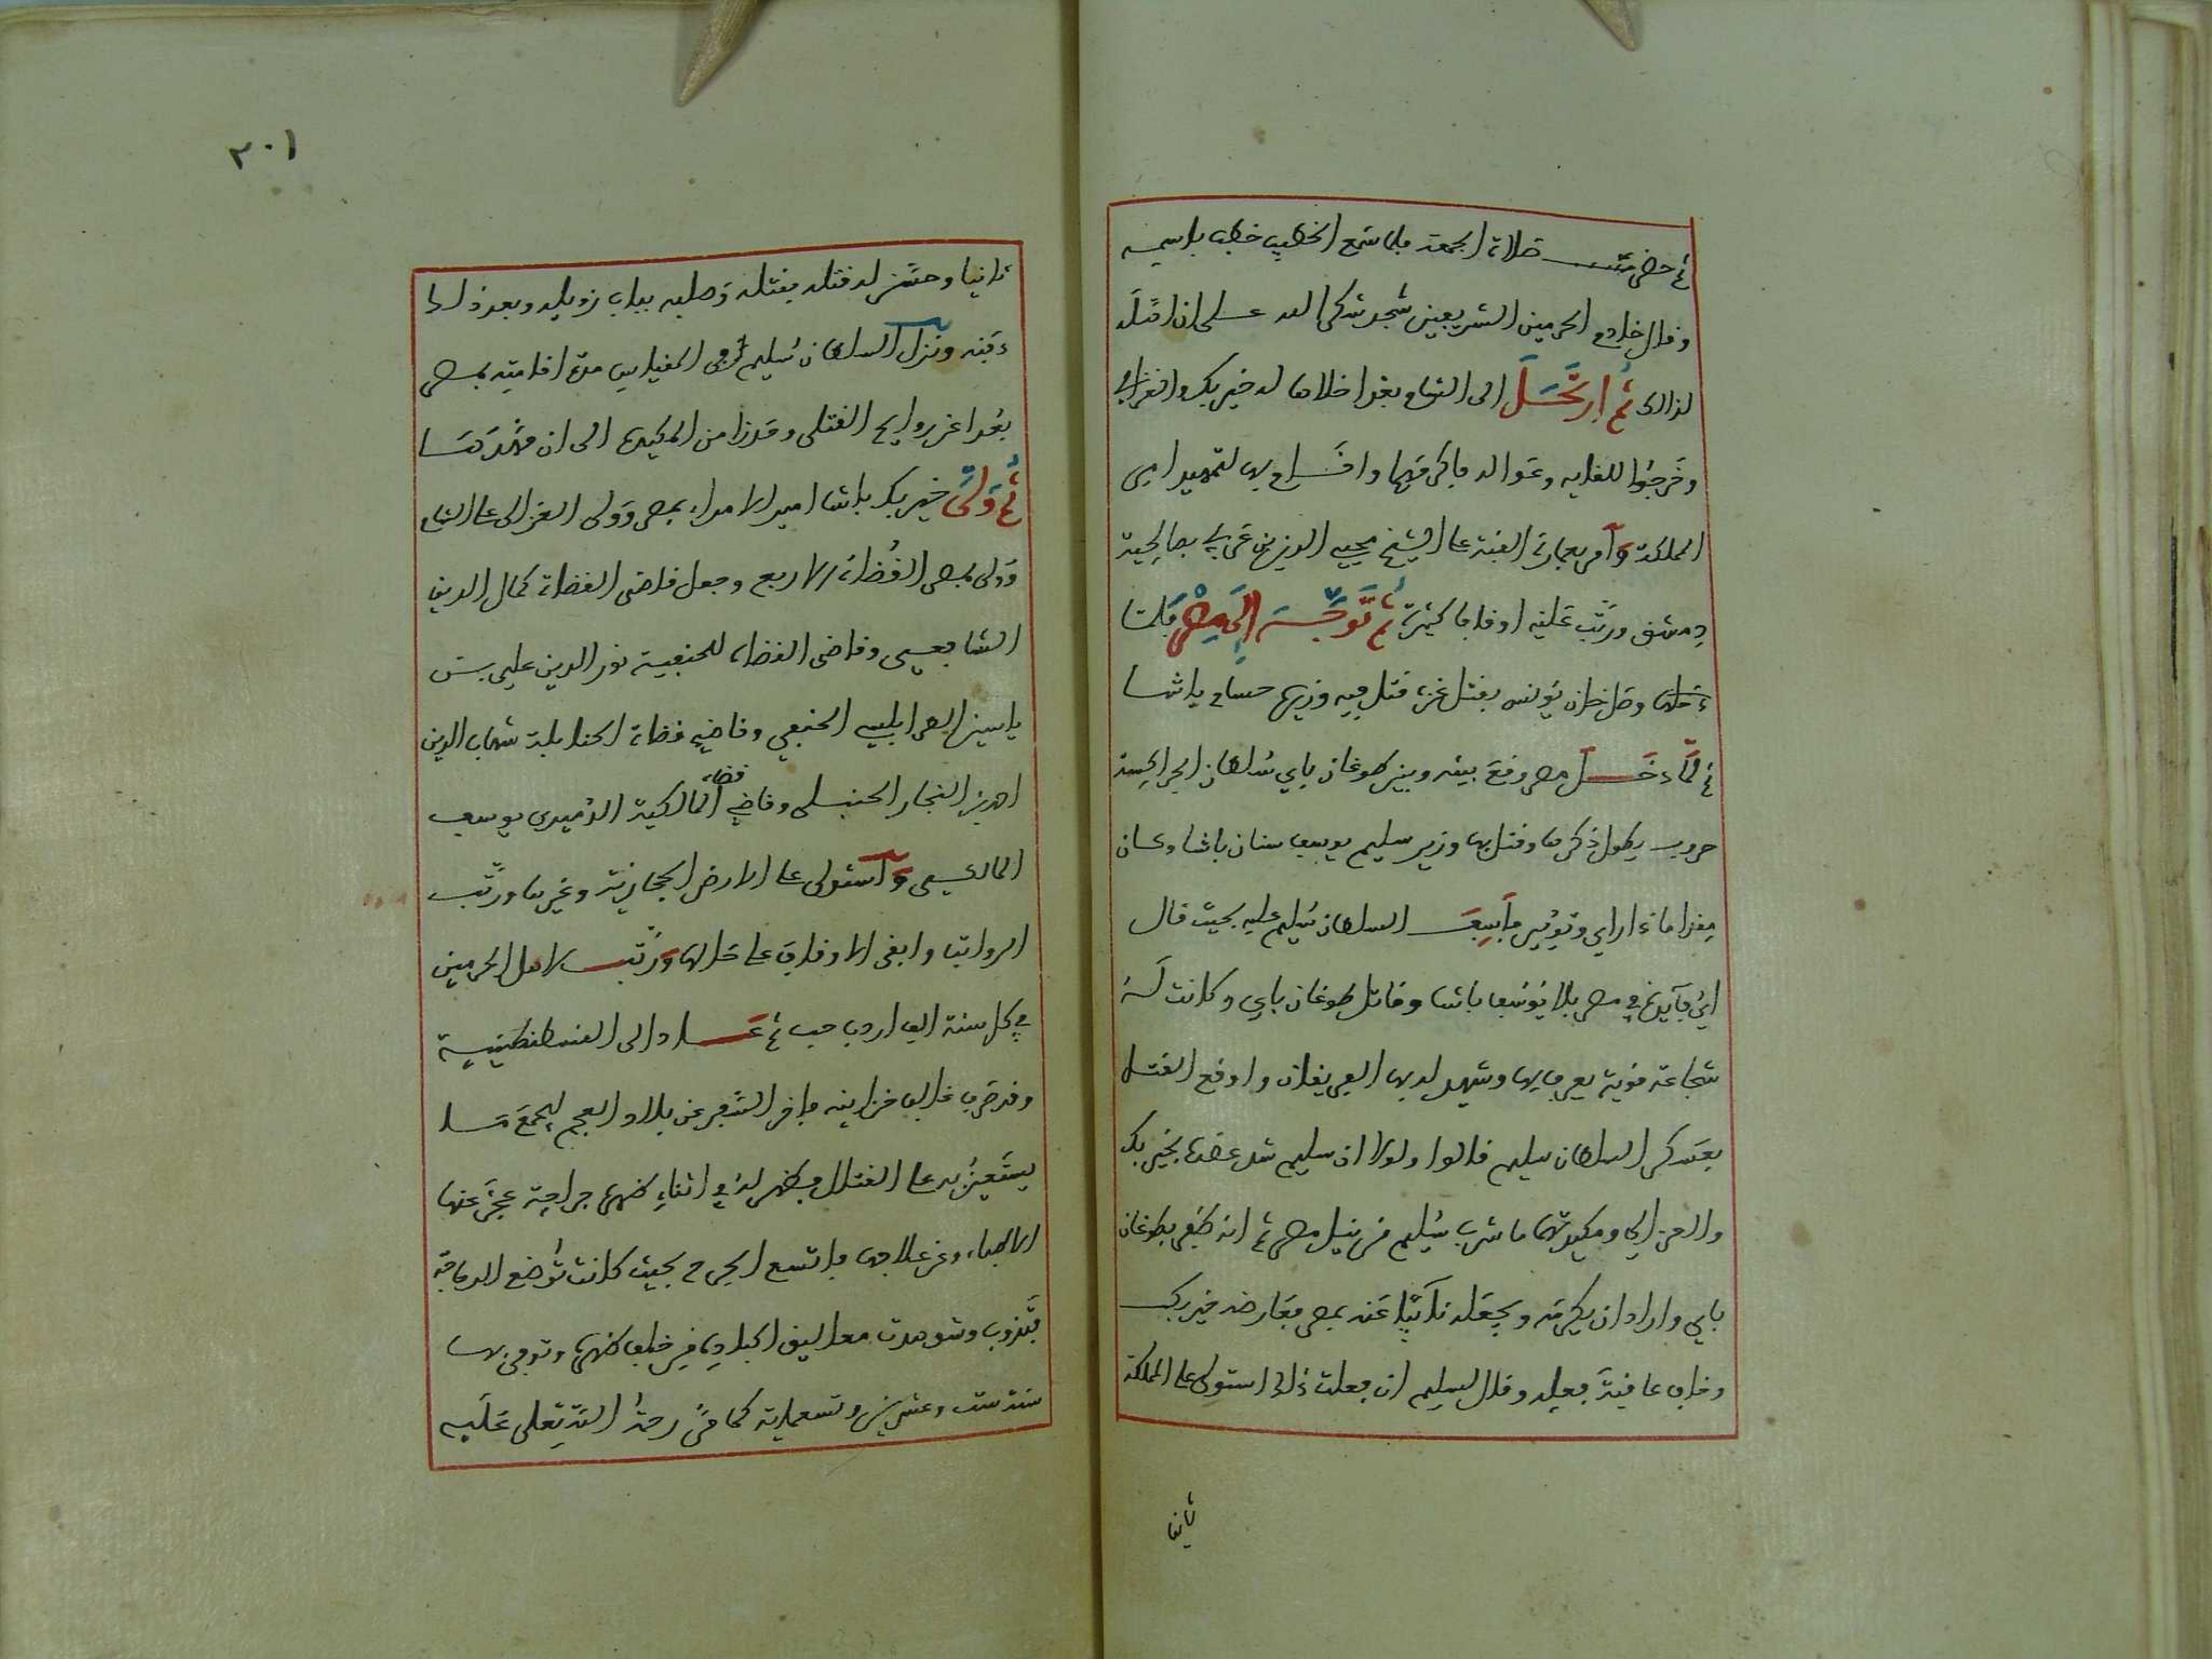 ثم حضرت صلاة الجمعة فلما سمع الخطيب خطب باسمه
وقال خادم الحرمين الشريفين سجد شكرا لله على ان اهله
لذلك ثم ارتحل الى الشام بعد اخلاها له خير بك والغزالي
وخرجوا للقايه وعوالد فاكرمهما واقام بها لتمهيد امر
المملكة وأمر بعمارة القبة على الشيخ محيي الدين بن عربي بصالحية
دمشق ورتب عليه اوقافا كثيرة ثم توجه إلى مصر فلما
وصل خان يونس بقتل غزة قتل فيه وزيره حسام باشا
ثم لما دخل مصر وقع بينه وبين طوغان باي سلطان الجراكسة
حروب يطول ذكرها وقتل بها وزير سليم يوسف سنان باشا وكان
مقداما ذا راي وتوبير فأسف السلطان سليم عليه بحيث قال
اي فايدة في مصر بلا يوسف باشا وقاتل طوغان باي وكانت له
شجاعة قوية يعرف بها وشهد له بها الفريقان واوقع القتل
بعسكر السلطان سليم قالوا ولولا ان سليم شد عضده بخير بك
والغزالي ومكيدتهما ما شرب سليم من نيل مصر ثم انه ظفر بطوغان
باي واراد ان يكرمه ويجعله نائبا عنه بمصر فعارضه خير بك
وخاف عاقبة فعله وقال لسليم ان فعلت ذلك استولى على المملكة
ثانيا
٢٠١
ثانيا وحسن له قتله فقتله وصلبه بباب زويله وبعد ذلك
دفنه ونزل السلطان سليم في المقياس مدة اقامته بمصر
بعدا عن روايح القتلى وحذرا من المكيدة الى ان مهدها
ثم ولى خير بك باشا امير الامراء بمصر وولى الغزالى على الشام
وولى بمصر القضاة الاربع وجعل قاضى القضاة كمال الدين
الشافعى وقاضى القضاة للحنفية نور الدين علي بن
ياسين الطرابلسي الحنفي وقاضي قضاة الحنابلة شهاب الدين
احمد بن النجار الحنبلى وقاضي قضاة المالكية الدميري يوسف
المالكي واستولى على الارض الحجازية وغيرها ورتب
الرواتب وابقى الاوقاف على حالها ورتب لاهل الحرمين
في كل سنة الف اردب حب ثم عاد الى القسطنطينية
وقد صرف غالب خزاينه فاخر السفر عن بلاد العجم ليجمع ما
يستعين به على القتال فظهر له في اثناء ظهره جراحة عجز عنها
الاطباء وعن علاجها فاتسع الجرح بحيث كانت توضع الدجاجة
فتذوب وشوهدت معاليق اكباده من خلف ظهره وتوفي بها
سنة ست وعشرين وتسعماية كما مر رحمة الله تعلى عليه